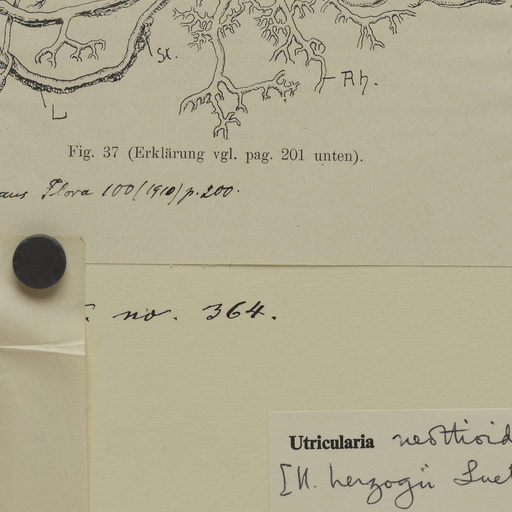 St.
Rh.
L
Fig. 37 (Erklärung vgl. pag. 201 unten).
aus Flora 100 (1910) p. 200.
no. 364.
Utricularia neottioid
[U. herzogii Luet